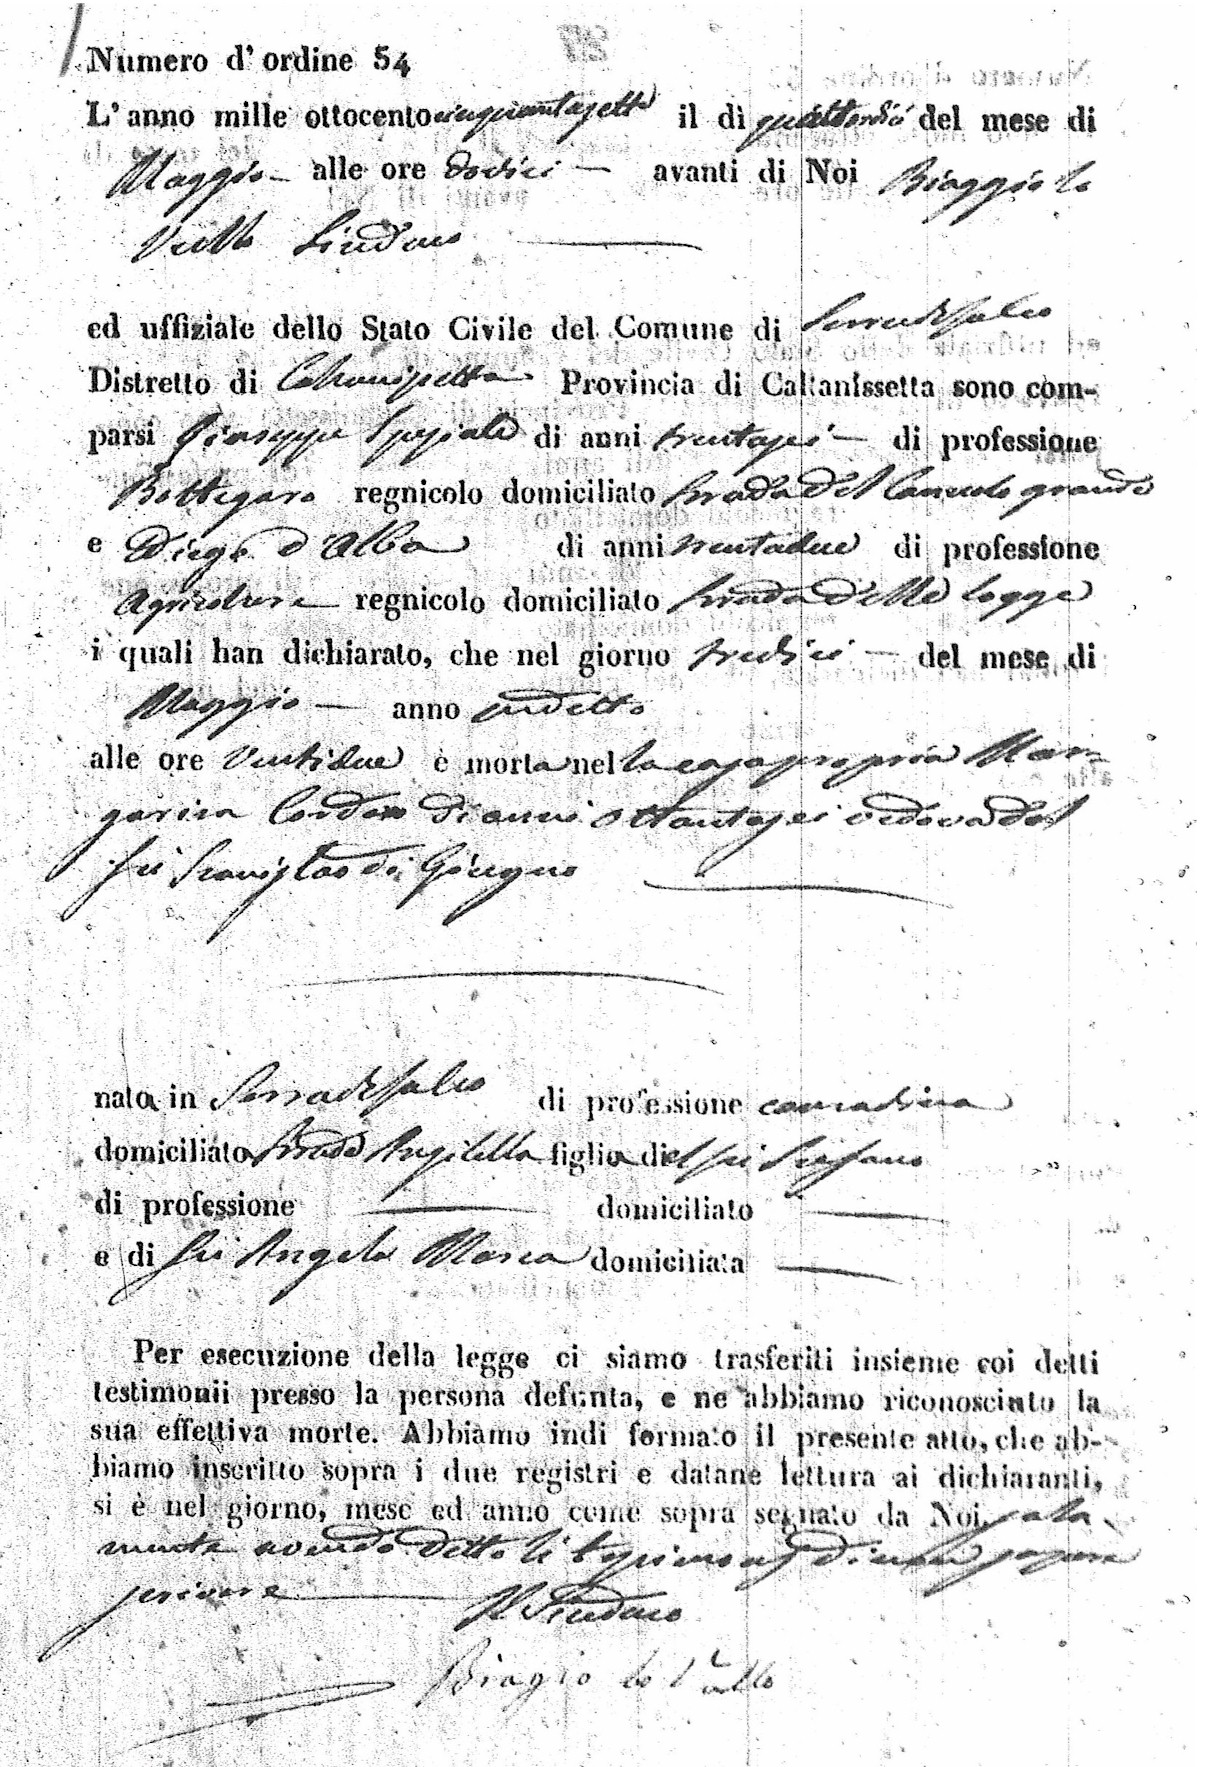 Numero d' ordine 54
L' anno mille ottocento cinquantasette il dì quattordici del mese di
Maggio — alle ore dodici — avanti di Noi Biaggio lo
Vullo Sindaco
ed uffiziale dello Stato Civile del Comune di Serradifalco
Distretto di Caltanissetta Provincia di Caltanissetta sono com-
parsi Giuseppe Speziale di anni trentasei — di professione
Bottegaro regnicolo domiciliato strada del Cannolo grande
e Diego d'Alba di anni trentadue di professione
Agricoltore regnicolo domiciliato strada delle logge
i quali han dichiarato, che nel giorno tredici — del mese di
Maggio — anno sudetto
alle ore Ventidue è morta nella casa propria Mar-
garita di anni ottantasei vedova del
fu di Giugno
nata in Serradifalco di professione contadina
domiciliato strada Angilella figlia del fu Stefano
di professione — domiciliato —
e di fu Angela Maria domiciliata —
Per esecuzione della legge ci siamo trasferiti insieme coi detti
testimonii presso la persona defunta, e ne abbiamo riconosciuto la
sua effettiva morte. Abbiamo indi formato il presente atto, che ab-
biamo inscritto sopra i due registri e datane lettura ai dichiaranti,
si è nel giorno, mese ed anno come sopra segnato da Noi sola
mente avendo detto li testimonj di non sapere
scrivere — Il Sindaco
Biagio lo Vullo